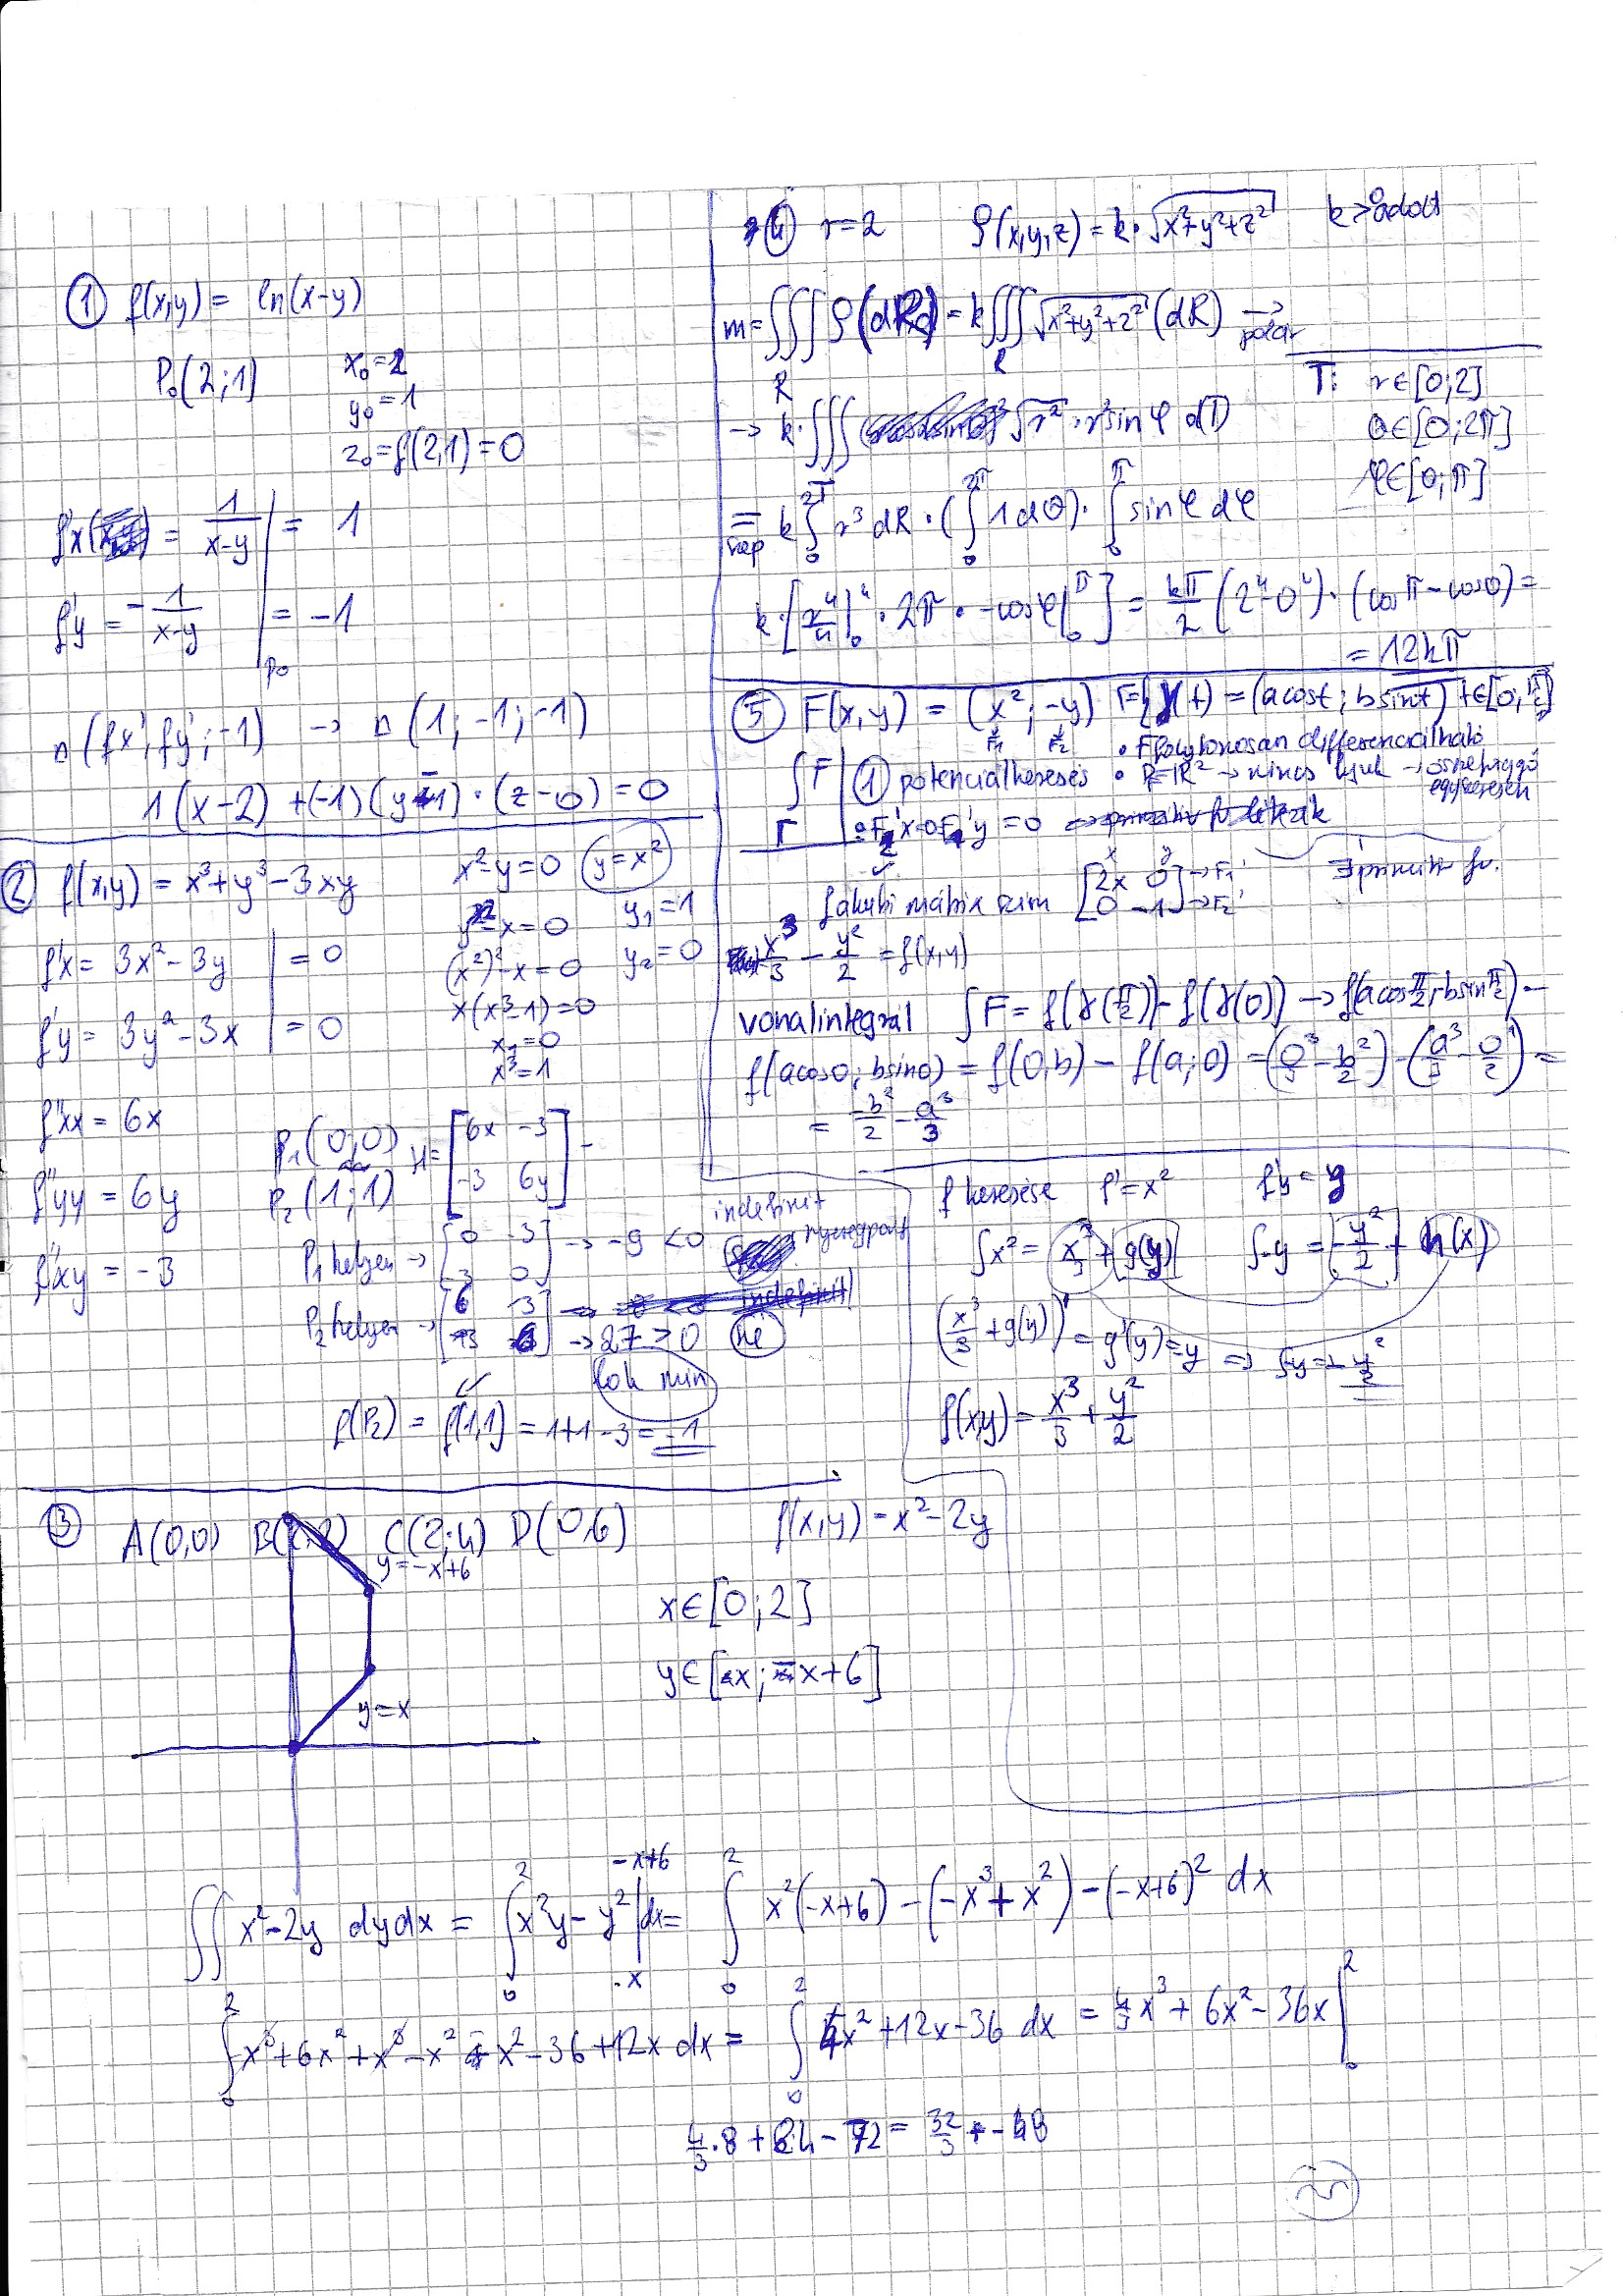 ① f(x,y) = ln(x-y)
P₀(2;1)
x₀=2
y₀=1
z₀=f(2,1)=0
f'x = 1/(x-y) | = 1
f'y = -1/(x-y) | = -1
P₀
n(fx'; fy'; -1) → n(1; -1; -1)
1(x-2) + (-1)(y-1)·(z-0) = 0
② f(x,y) = x³+y³-3xy
f'x = 3x²-3y | = 0
f'y = 3y²-3x | = 0
f''xx = 6x
f''yy = 6y
f''xy = -3
x²-y=0 y=x²
y²-x=0
(x²)²-x=0
x(x³-1)=0
x₁=0
x³=1
y₁=1
y₂=0
P₁(0,0)
P₂(1;1)
H = [6x -3; -3 6y] =
P₁ helyen → [0 -3; -3 0] → -9 < 0 indefinit nyeregpont
P₂ helyen → [6 -3; -3 6] → 27 > 0
lok min
f(P₂) = f(1,1) = 1+1-3 = -1
③ A(0,0) B(2;2) C(2;4) D(0,6)
f(x,y) = x²-2y
y=-x+6
y=x
x∈[0;2]
y∈[x; -x+6]
∬ x²-2y dydx = ∫₀² x²y-y² |ₓ^(-x+6) dx = ∫₀² x²(-x+6) - (-x³+x²) - (-x+6)² dx
∫₀² -x³+6x²+x³-x²-x²-36+12x dx = ∫₀² 4x²+12x-36 dx = 4/3 x³ + 6x² - 36x |₀²
4/3·8 + 6·4 - 72 = 32/3 + -48
④ r=2 ρ(x,y,z) = k·√(x²+y²+z²) k>0 adott
m = ∭_R ρ(dR) = k∭_R √(x²+y²+z²) (dR) → polár
T: r∈[0;2]
θ∈[0;2π]
φ∈[0;π]
→ k·∭ √r²·r² sin φ d(T)
= k ∫₀² r³ dR · (∫₀^2π 1 dθ) · ∫₀^π sin φ dφ
k·[x⁴/4 |₀⁴ · 2π · -cos φ |₀^π] = kπ/2 (2⁴-0⁴)·(cos π - cos 0) =
= 12kπ
⑤ F(x,y) = (x²; -y) Γ={γ(t) = (a cost; b sint) t∈[0;π/2]
F₁ F₂
∫_Γ F
① potenciálkeresés
• F folytonosan differenciálható
• R=ℝ² → nincs lyuk → összefüggő egyszeresen
• F₂'x=0 F₁'y=0
Jakobi mátrix szim [2x 0; 0 -1] → F₁' → F₂'
∃ primitív fv.
x³/3 - y²/2 = f(x,y)
vonalintegrál ∫F = f(γ(π/2)) - f(γ(0)) → f(a cos π/2, b sin π/2) -
f(a cos0; b sin0) = f(0,b) - f(a;0) = (0³/3 - b²/2) - (a³/3 - 0/2) =
= -b²/2 - a³/3
f keresése f'=x² f'y=y
∫x² = x³/3 + g(y) ∫-y = -y²/2 + h(x)
(x³/3 + g(y))' = g'(y) = y ⇒ ∫y = -y²/2
f(x,y) = x³/3 + y²/2